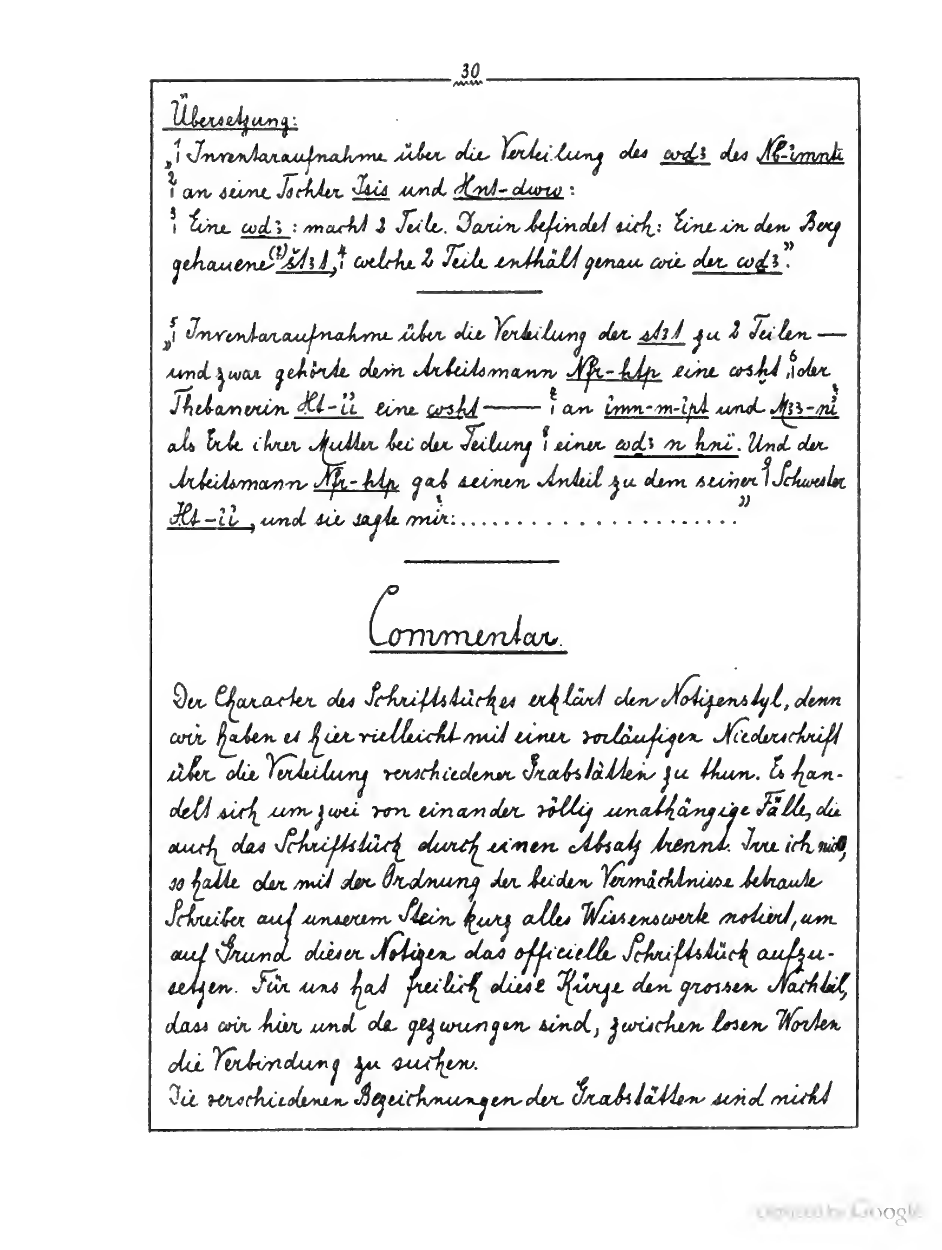 30
Übersetzung:
„1 Inventaraufnahme über die Verteilung des wdꜣ des Nb-imnti
2 an seine Tochter Isis und Hnt-dww:
3 Eine wdꜣ: macht 2 Teile. Darin befindet sich: Eine in den Berg
gehauene (?) štꜣt, 4 welche 2 Teile enthält genau wie der wdꜣ.”
„5 Inventaraufnahme über die Verteilung der štꜣt zu 2 Teilen —
und zwar gehörte dem Arbeitsmann Nfr-htp eine wsht, 6 der
Thebanerin Ht-ii eine wsht — 7 an imn-m-ipt und Mꜣꜣ-ni
als Erbe ihrer Mutter bei der Teilung 8 einer wdꜣ n hni. Und der
Arbeitsmann Nfr-htp gab seinen Anteil zu dem seiner 9 Schwester
Ht-ii, und sie sagte mir: . . . . . . . . . . . . . . . . . . . . . . ”
Commentar.
Der Character des Schriftstückes erklärt den Notizenstyl, denn
wir haben es hier vielleicht mit einer vorläufigen Niederschrift
über die Verteilung verschiedener Grabstätten zu thun. Es han-
delt sich um zwei von einander völlig unabhängige Fälle, die
auch das Schriftstück durch einen Absatz trennt. Irre ich nicht,
so hatte der mit der Ordnung der beiden Vermächtnisse betraute
Schreiber auf unserem Stein kurz alles Wissenswerte notiert, um
auf Grund dieser Notizen das officielle Schriftstück aufzu-
setzen. Für uns hat freilich diese Kürze den grossen Nachteil,
dass wir hier und da gezwungen sind, zwischen losen Worten
die Verbindung zu suchen.
Die verschiedenen Bezeichnungen der Grabstätten sind nicht
Digitized by Google